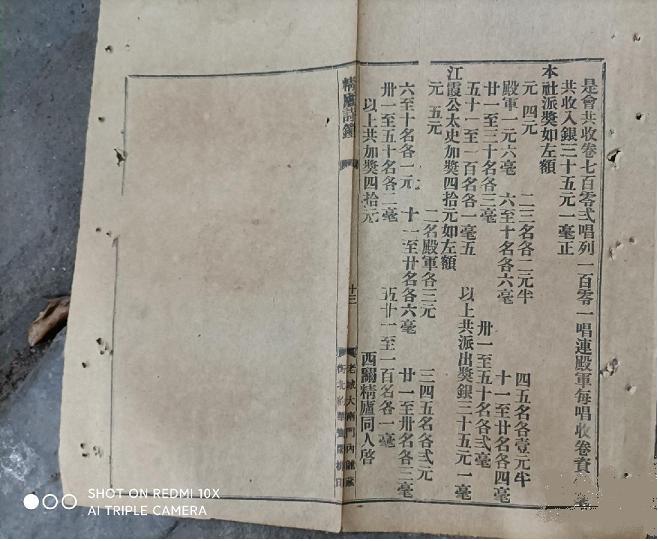 是會共收卷七百零弍唱列一百零一唱連殿軍每唱收卷資
共收入銀三十五元一毫正
本社派獎如左額
元 四元 二三名各二元半 四五名各壹元半
殿軍一元六毫 六至十名各六毫 十一至廿名各四毫
廿一至三十名各三毫 卅一至五十名各弍毫
五十一至一百名各一毫五 以上共派出獎銀三十五元一毫
江霞公太史加獎四拾元如左額
元 五元 二名殿軍各三元 三四五名各弍元
六至十名各一元 十一至廿名各六毫 廿一至卅名各三毫
卅一至五十名各二毫 五十一至一百名各一毫
以上共加獎四拾元 西關精廬同人啓
精廬詩鐘
十三
老城大南門內
SHOT ON REDMI 10X
AI TRIPLE CAMERA